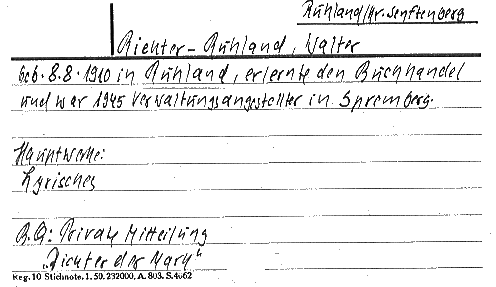 Ruhland/Kr. Senftenberg
Richter-Ruhland, Walter
Geb. 8.8.1910 in Ruhland, erlernte den Buchhandel
und war 1945 Verwaltungsangestellter in Spremberg.
Hauptwerke:
Lyrisches
B.Q: Private Mitteilung
„Dichter der Mark“
Reg. 10 Stichnote. 1. 50. 232000. A. 803. S. 4062